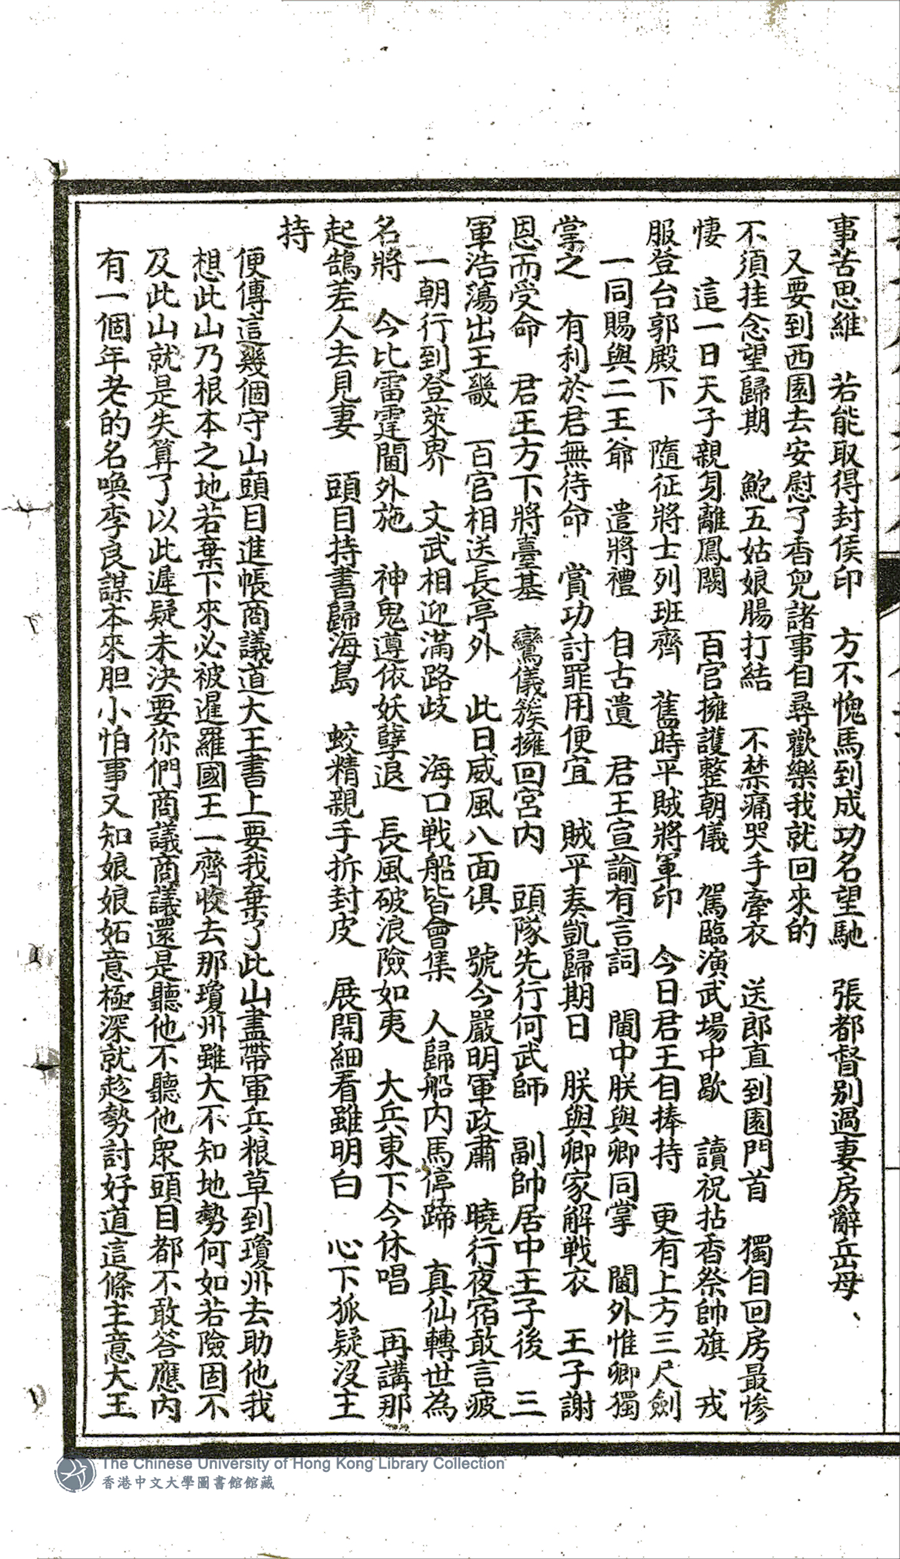 事苦思維　若能取得封侯印　方不愧馬到成功名望馳　張都督别過妻房辭岳母、
又要到西園去安慰了香兒諸事自尋歡樂我就回來的
不須挂念望歸期　鮑五姑娘腸打結　不禁痛哭手牽衣　送郎直到園門首　獨自回房最慘
悽　這一日天子親身離鳳闕　百官擁護整朝儀　駕臨演武場中歇　讀祝拈香祭帥旗　戎
服登台郭殿下　隨征將士列班齊　舊時平賊將軍印　今日君王自捧持　更有上方三尺劍
一同賜與二王爺　遣將禮　自古遺　君王宣諭有言詞　閫中朕與卿同掌　閫外惟卿獨
掌之　有利於君無待命　賞功討罪用便宜　賊平奏凱歸期日　朕與卿家解戰衣　王子謝
恩而受命　君王方下將臺基　鸞儀簇擁回宮內　頭隊先行何武師　副帥居中王子後　三
軍浩蕩出王畿　百官相送長亭外　此日威風八面俱　號令嚴明軍政肅　曉行夜宿敢言疲
一朝行到登萊界　文武相迎滿路歧　海口战船皆會集　人歸船內馬停蹄　真仙轉世為
名將　今比雷霆閫外施　神鬼遵依妖孽退　長風破浪險如夷　大兵東下今休唱　再講那
起鵠差人去見妻　頭目持書歸海島　蛟精親手拆封皮　展開細看雖明白　心下狐疑沒主
持
便傳這幾個守山頭目進帳商議道大王書上要我棄了此山盡帶軍兵粮草到瓊州去助他我
想此山乃根本之地若棄下來必被暹羅國王一齊收去那瓊州雖大不知地勢何如若險固不
及此山就是失算了以此遲疑未決要你們商議商議還是聽他不聽他眾頭目都不敢答應內
有一個年老的名喚李良謀本來胆小怕事又知娘娘妬意極深就趁勢討好道這條主意大王
The Chinese University of Hong Kong Library Collection
香港中文大學圖書館館藏